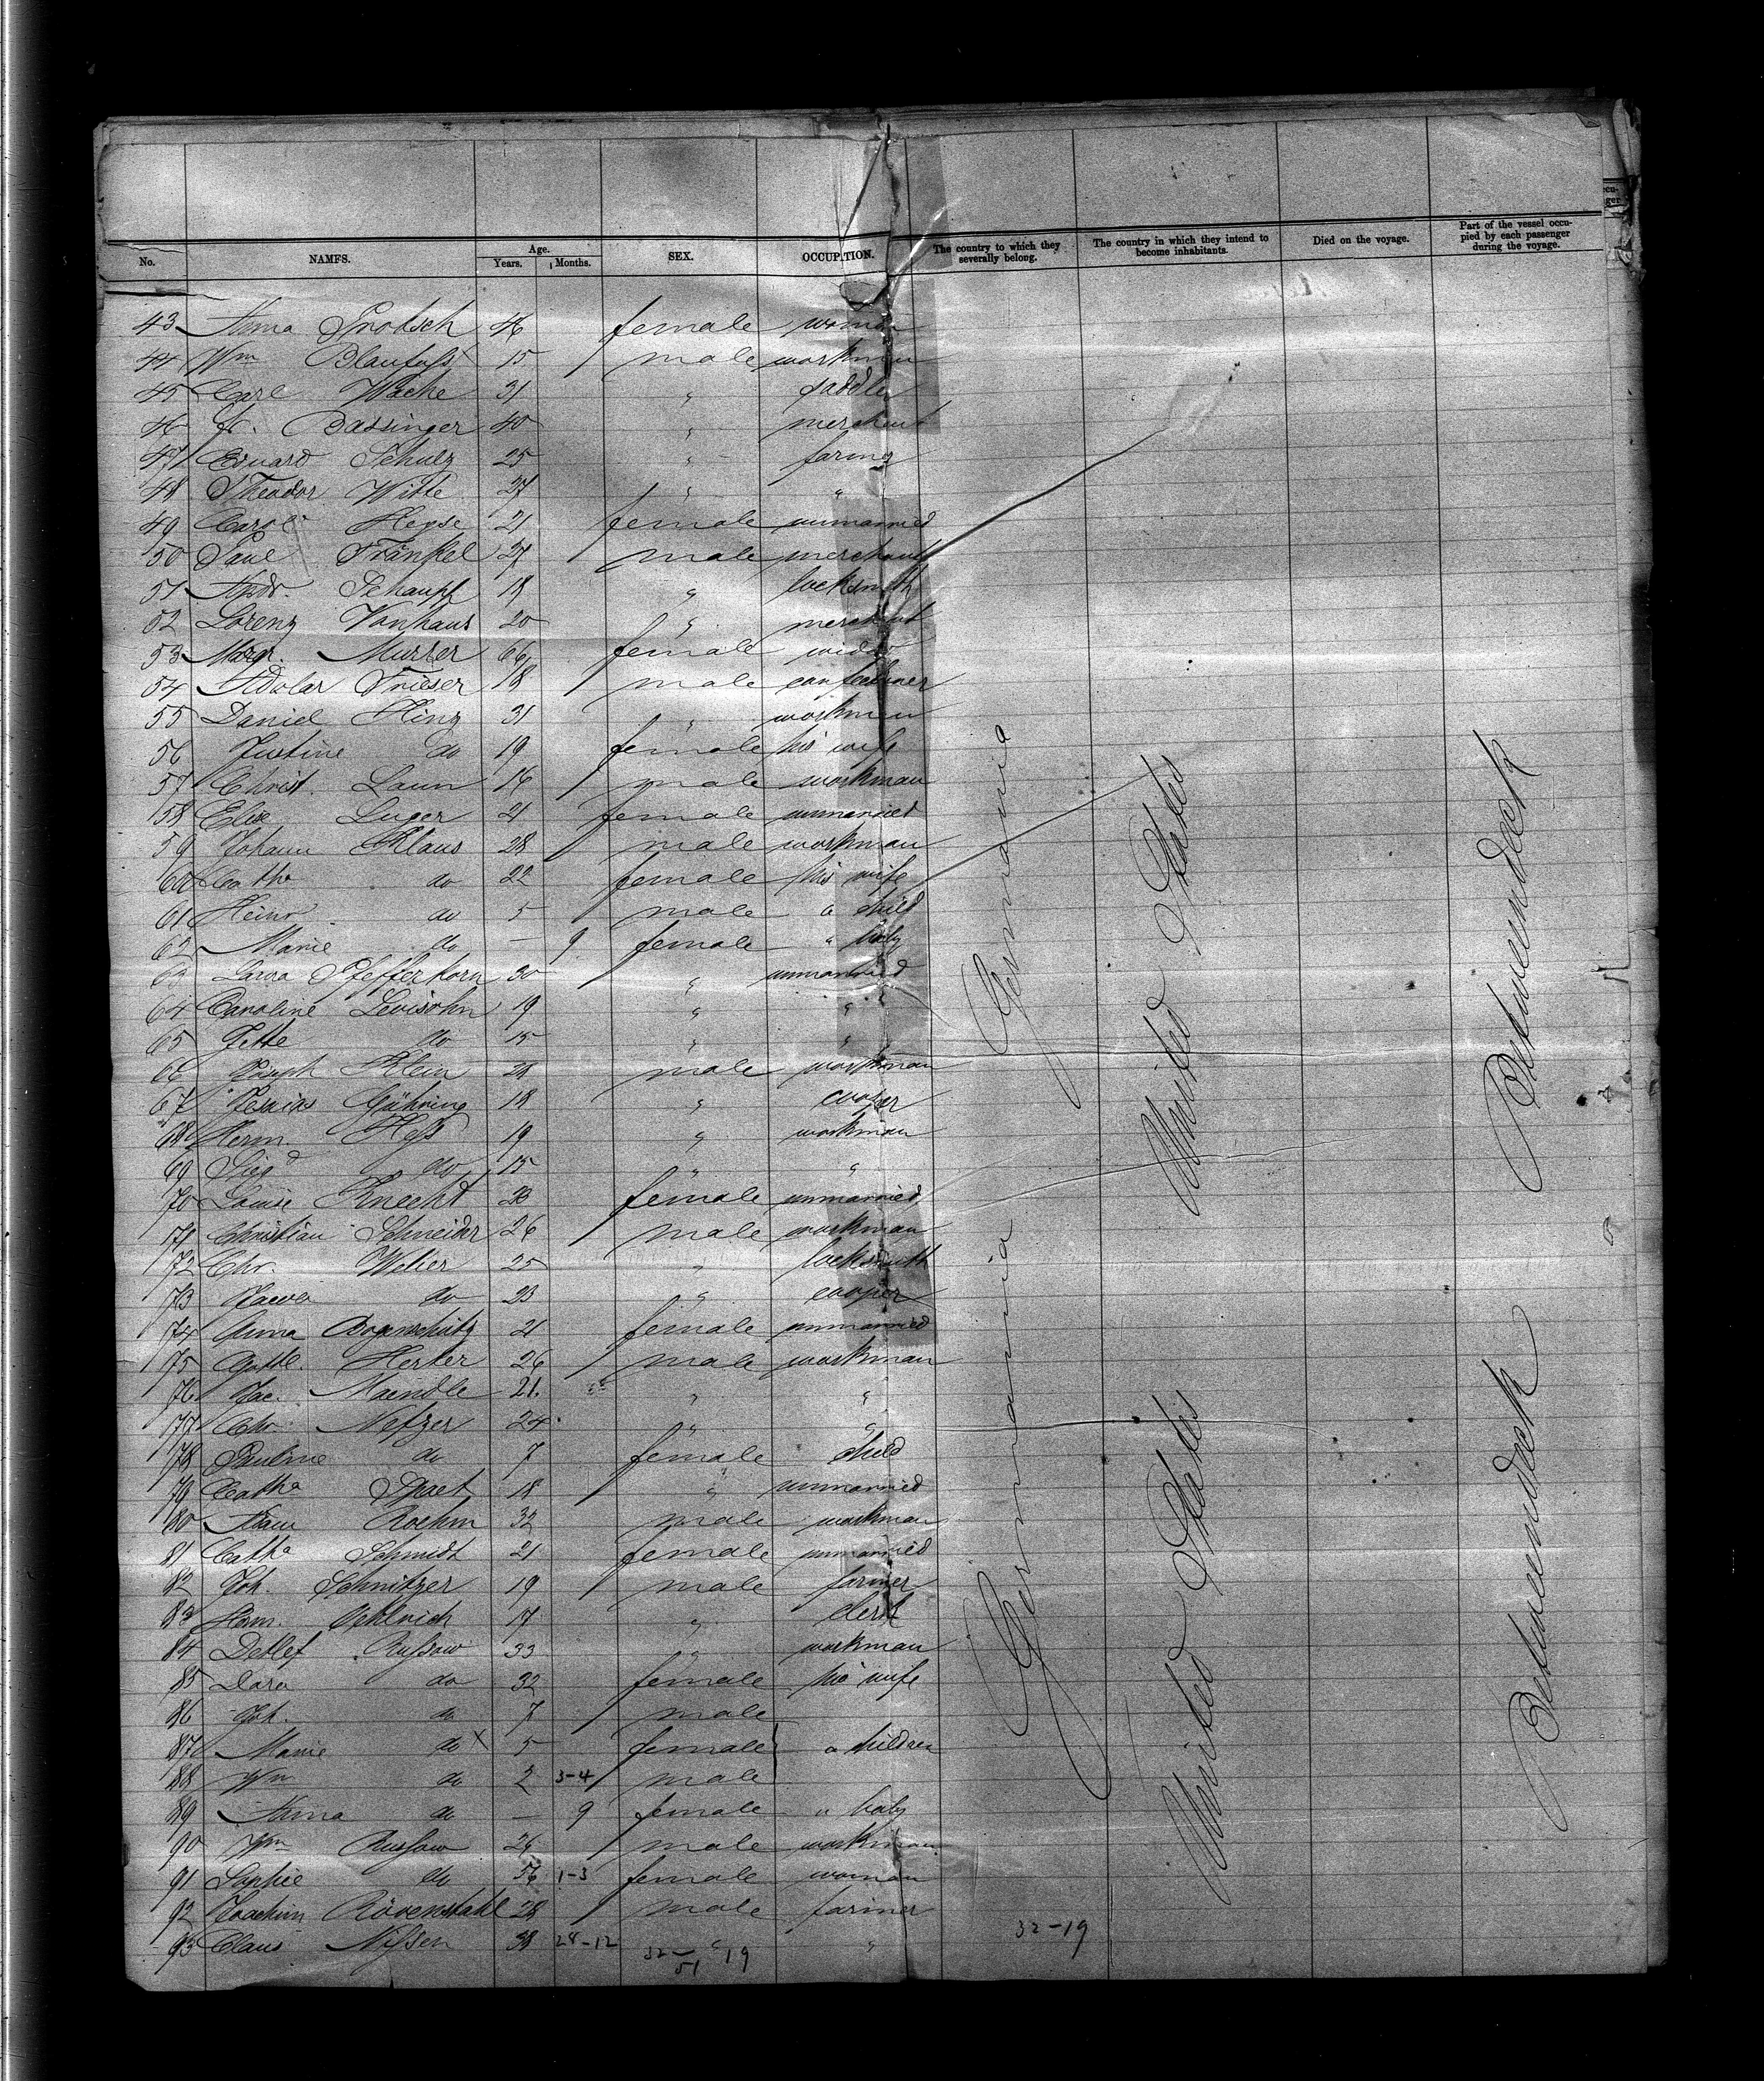 No. NAMES. Age. Years. Months. SEX. OCCUPATION. The country to which they severally belong. The country in which they intend to become inhabitants. Died on the voyage. Part of the vessel occupied by each passenger during the voyage.
43 Anna 46 female woman
44 Wm Blaufuss 15 male workman
45 Carl Wacke 31 " saddler
46 Fr. Bassinger 40 " merchant
47 Eduard Schulz 25 " farmer
48 Theodor Witte 27 " "
49 Carol. Heyse 21 female unmarried
50 Paul Fränkel 27 male merchant
51 Andr. Schaupp 19 " locksmith
52 Lorenz Vonhaus 20 " merchant
53 Margr. Murrer 66 female widow
54 Adolar Frieser 18 male confectioner
55 Daniel Hinz 31 " workman
56 Justine do 19 female his wife
57 Christ. Laun 16 male workman
58 Elise Luger 21 female unmarried
59 Johann Klaus 28 male workman
60 Catha do 22 female his wife
61 Heinr. do 5 male a child
62 Marie do — 9 female " baby
63 Pfefferkorn 30 " unmarried
64 Caroline Levisohn 19 " "
65 Jette do 15 " "
66 Klein 28 male workman
67 Jesaias Gühring 18 " cooper
68 Herm. Hess 19 " workman
69 Siegd do 15 " "
70 Louise Knecht 23 female unmarried
71 Christian Schneider 26 male workman
72 Chr. Weber 25 " locksmith
73 do 23 " cooper
74 Anna Bogenschütz 21 female unmarried
75 Gottl. Herter 26 male workman
76 Jac. Maendle 21 " "
77 Chr. Nefzer 24 " "
78 Pauline do 7 female child
79 Catha Spaet 18 " unmarried
80 Roehm 32 male workman
81 Catha Schmidt 21 female unmarried
82 Joh. Schnitzer 19 male farmer
83 Herm. 17 " clerk
84 Detlef Russow 33 " workman
85 Dora do 32 female his wife
86 Joh. do 7 male
87 Marie do X 5 female a children
88 Wm do 2 3-4 male
89 Anna do — 9 female " baby
90 Wm Russow 26 male workman
91 Sophie do 56 1-3 female woman
92 Joachim Rövenstahl 28 male farmer
93 Claus Nissen 38 28-12 " "
32-19
51
32-19
Germania
United States
Betweendeck
Germania
United States
Betweendeck